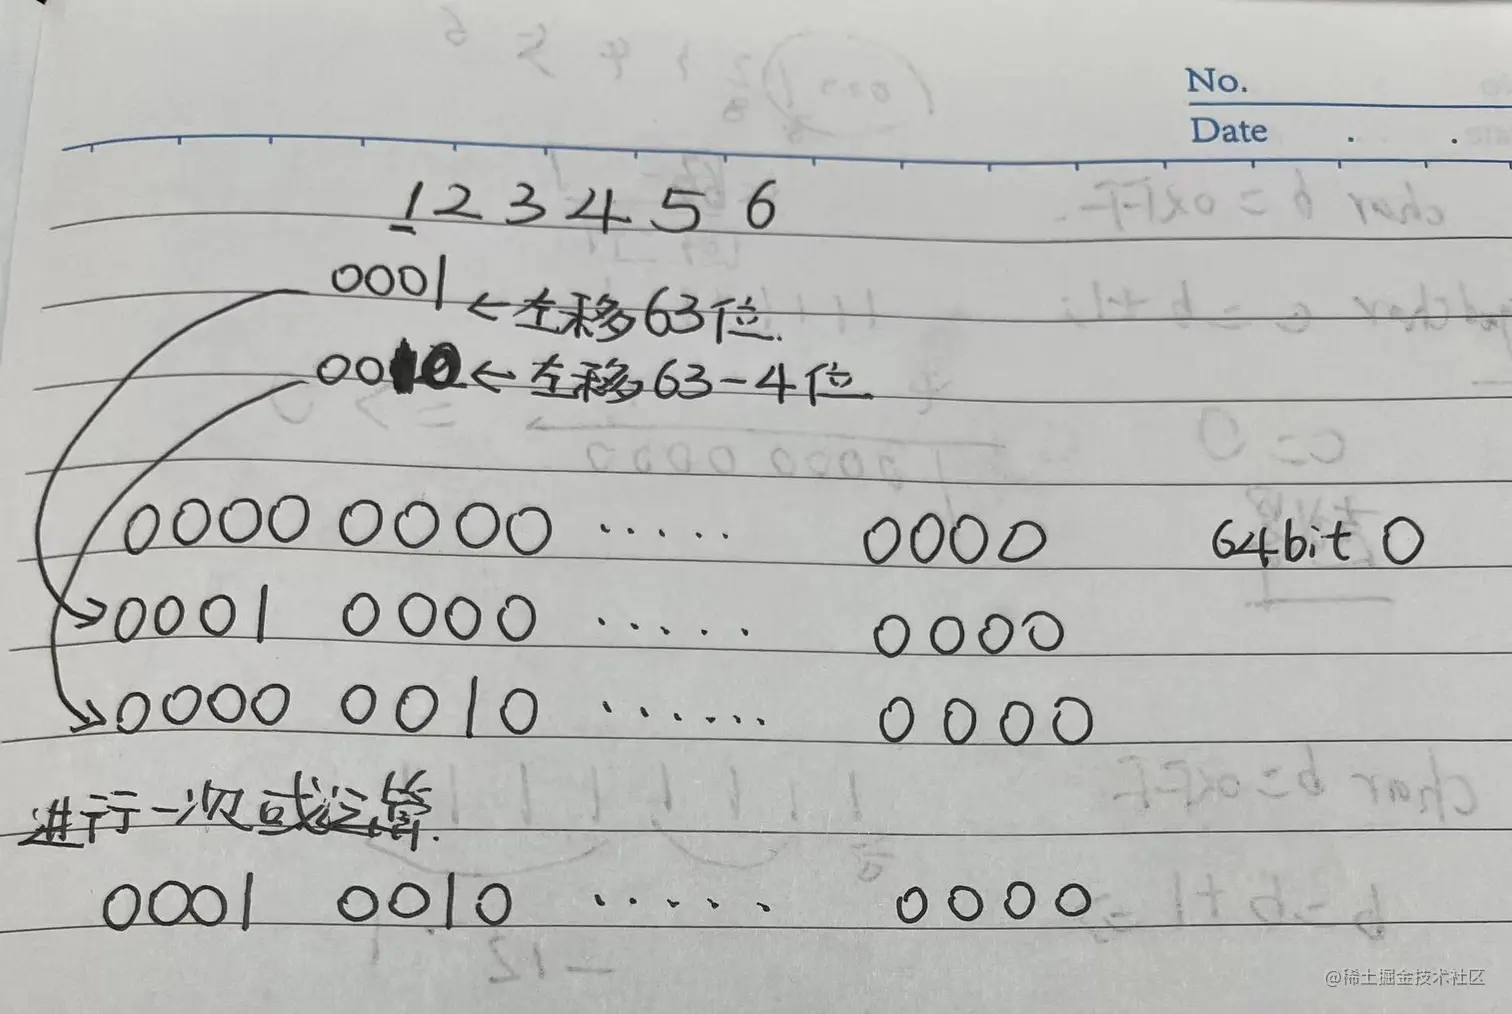 No.
Date . .
1 2 3 4 5 6
0001 ← 左移63位.
0010 ← 左移63-4位.
0000 0000 ····· 0000 64bit 0
0001 0000 ····· 0000
0000 0010 ······ 0000
进行一次或运算.
0001 0010 ····· 0000
@稀土掘金技术社区